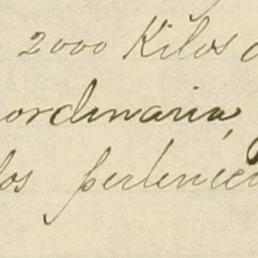 2000 Kilos
ordinaria,
los pertenec